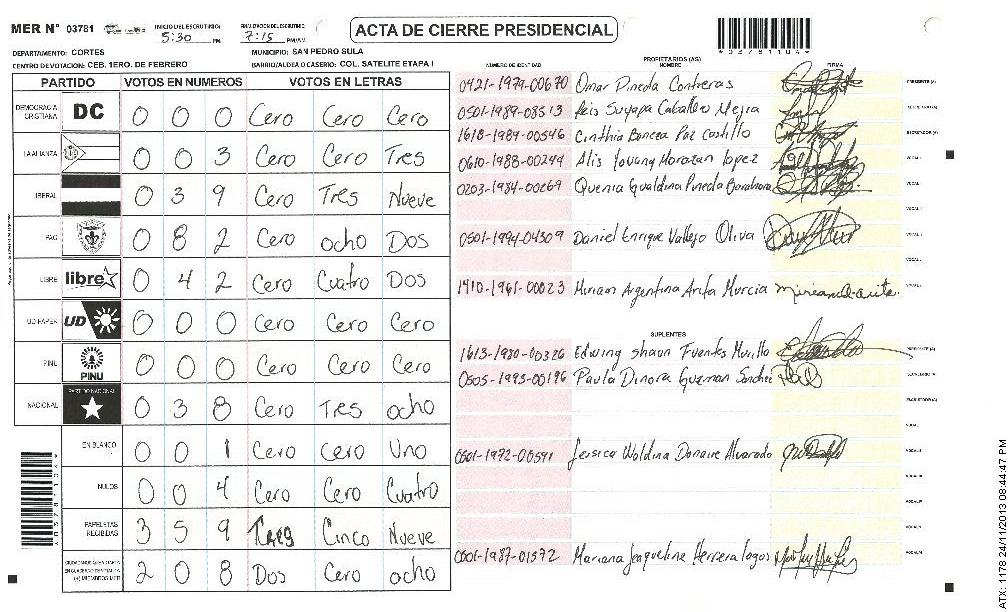 MER N° 03781
INICIO DEL ESCRUTINIO: 5:30 PM
FINALIZACION DEL ESCRUTINIO: 7:15 PM/AM
ACTA DE CIERRE PRESIDENCIAL
DEPARTAMENTO: CORTES
MUNICIPIO: SAN PEDRO SULA
CENTRO DE VOTACION: CEB. 1ERO. DE FEBRERO
BARRIO/ALDEA O CASERIO: COL. SATELITE ETAPA I
PARTIDO VOTOS EN NUMEROS VOTOS EN LETRAS
DEMOCRACIA CRISTIANA DC 0 0 0 Cero Cero Cero
LA ALIANZA 0 0 3 Cero Cero Tres
LIBERAL 0 3 9 Cero Tres Nueve
PAC 0 8 2 Cero ocho Dos
LIBRE libre 0 4 2 Cero Cuatro Dos
UD/FAPER UD 0 0 0 Cero Cero Cero
PINU PINU 0 0 0 Cero Cero Cero
NACIONAL PARTIDO NACIONAL 0 3 8 Cero Tres ocho
EN BLANCO 0 0 1 Cero Cero Uno
NULOS 0 0 4 Cero Cero Cuatro
PAPELETAS RECIBIDAS 3 5 9 Tres Cinco Nueve
(+) MIEMBROS MER 2 0 8 Dos Cero ocho
NUMERO DE IDENTIDAD PROPIETARIOS (AS) NOMBRE FIRMA
0421-1979-00670 Omar Pineda Contreras PRESIDENTE (A)
0501-1989-08513 Suyapa Caballero Mejia SECRETARIO (A)
1618-1989-00546 Cinthia Paz Castillo ESCRUTADOR (A)
0610-1988-00244 Alis Morazan lopez VOCAL I
0203-1984-00269 Quenia Pineda VOCAL
VOCAL
0501-1994-04309 Daniel Enrique Vallejo Oliva
VOCAL
1910-1961-00023 Miriam Argentina Arita Murcia VOCAL
SUPLENTES
1613-1980-00326 Edwing shaun Fuentes Murillo PRESIDENTE (A)
0505-1993-00196 Paula Dinora Guzman SECRETARIO (A)
ESCRUTADOR (A)
VOCAL
0501-1972-00591 Jessica Waldina Donaire Alvarado VOCAL
VOCAL
VOCAL
0501-1987-01572 Mariana Jaqueline Herrera lagos VOCAL
ATX: 1178 24/11/2013 08:44:47 PM